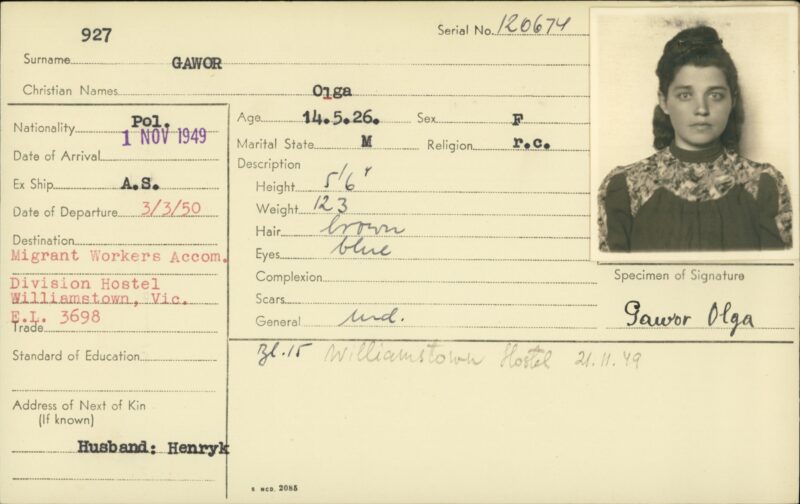 927
Serial No. 120674
Surname GAWOR
Christian Names Olga
Nationality Pol.
1 NOV 1949
Date of Arrival
Ex Ship A.S.
Date of Departure 3/3/50
Destination
Migrant Workers Accom.
Division Hostel
Williamstown, Vic.
E.L. 3698
Trade
Standard of Education
Address of Next of Kin
(If known)
Husband: Henryk
Age 14.5.26. Sex F
Marital State M Religion r.c.
Description
Height 5/6"
Weight 123
Hair brown
Eyes blue
Complexion
Scars
General
Specimen of Signature
Gawor Olga
Bl. 15 Williamstown Hostel 21.11.49
2085